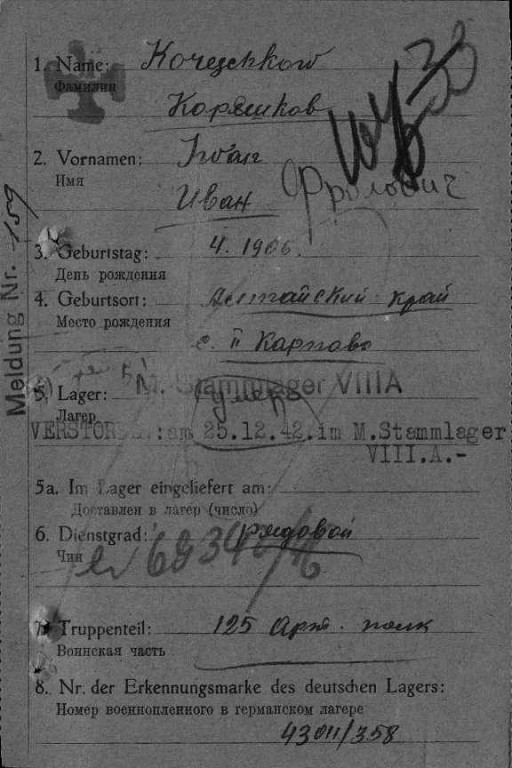 1. Name:
Фамилия
Коряшков
2. Vornamen: Iван
Имя
Иван Фролович
3. Geburtstag: 4. 1906.
День рождения
4. Geburtsort: Алтайский край
Место рождения
с. П Карпово
5) Lager: M. Stammlager VIIIA
Лагер умер
VERSTORBEN: am 25.12.42.im M.Stammlager
VIII.A.-
5a. Im Lager eingeliefert am:
Доставлен в лагер (число)
6. Dienstgrad: рядовой
Чин
7. Truppenteil: 125 Арт. полк
Воинская часть
8. Nr. der Erkennungsmarke des deutschen Lagers:
Номер военнопленного в германском лагере
43011/358
Meldung Nr. 159